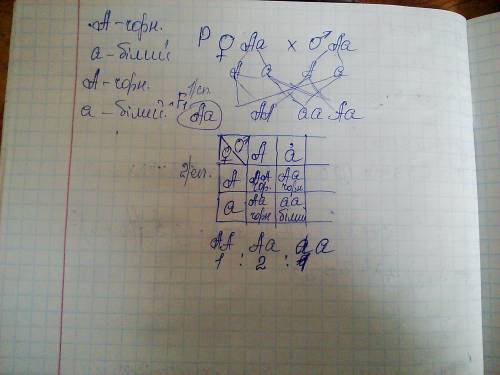 A - чорн.
а - білий
A - чорн.
а - білий.
P ♀ Aa x ♂ Aa
A a A a
1/сп.
F₁ Aa AA aa Aa
2/сп.
♀ ♂ A a
A AA чор. Aa чорн
a Aa чорн aa білий
AA Aa aa
1 : 2 : 1